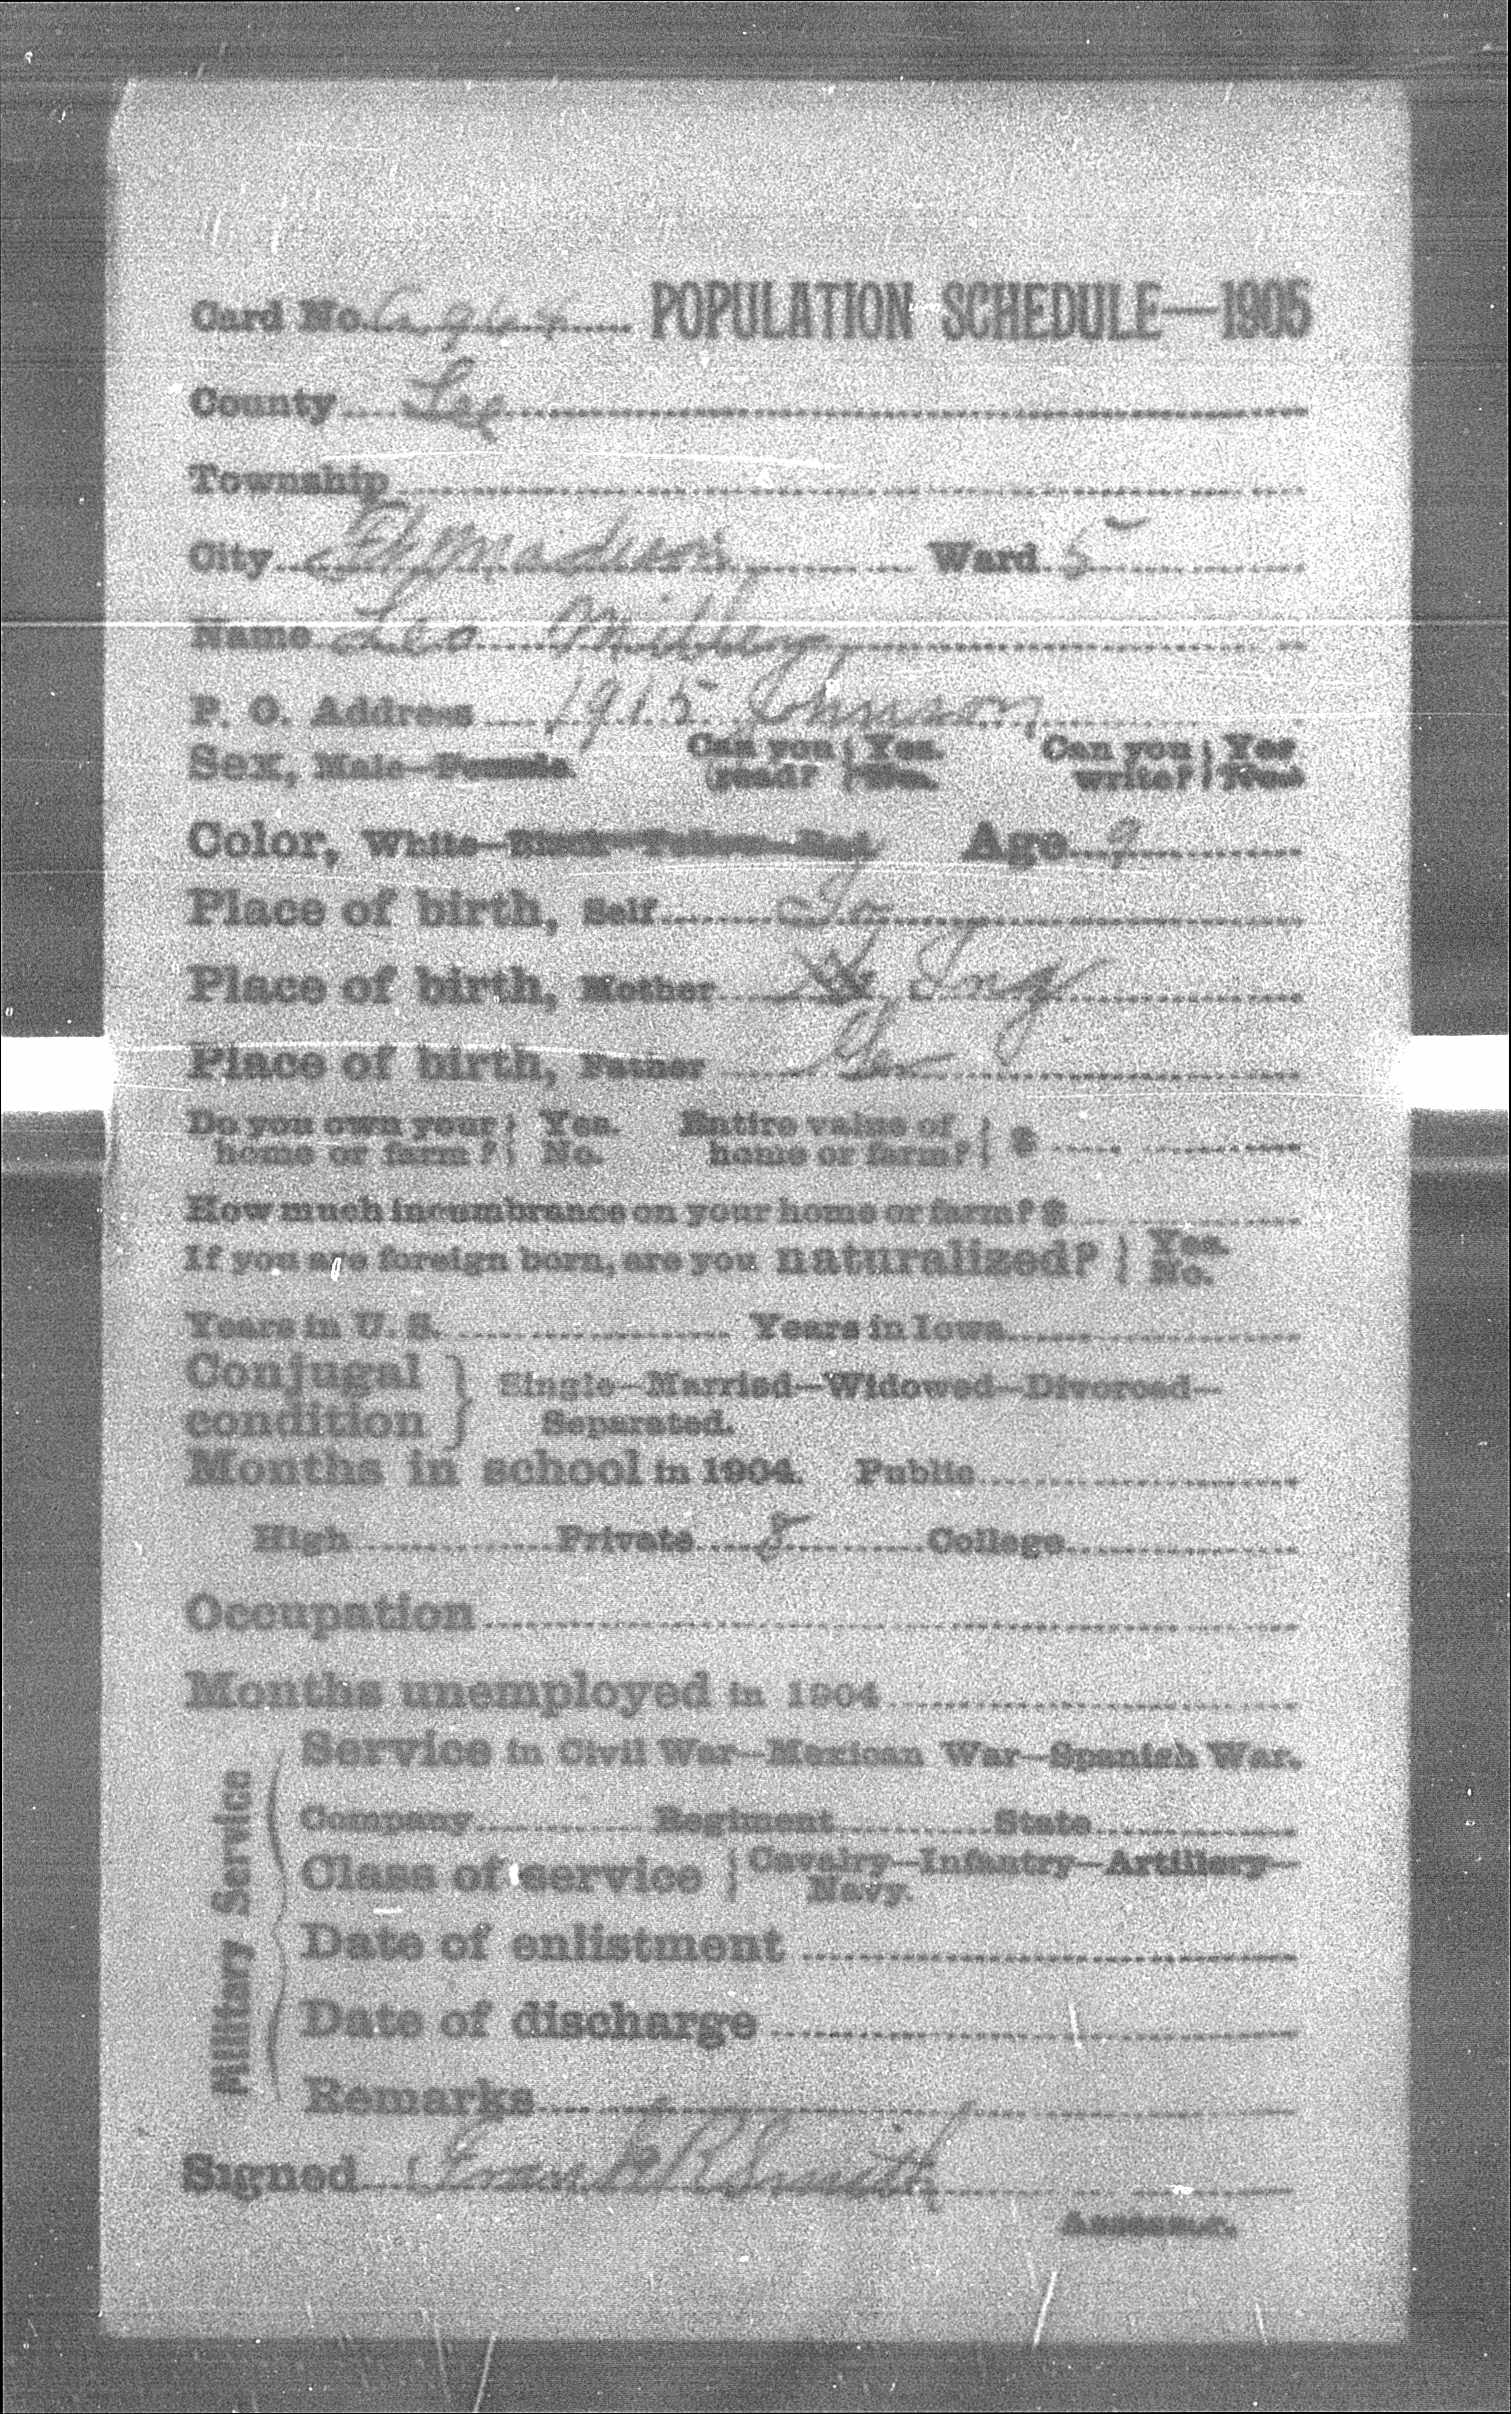 Card No. C 964 POPULATION SCHEDULE—1905
County Lee
Township
City Ft Madison Ward 5
Name Leo
P. O. Address 1915 Johnson
Sex, Male—Female. Can you read? } Yes. No. Can you write? } Yes No
Color, White—Black—Yellow—Red Age 9
Place of birth, Self Ia
Place of birth, Mother Ing
Place of birth, Father Ger
Do you own your home or farm? } Yes. No. Entire value of home or farm? } $
How much incumbrance on your home or farm? $
If you are foreign born, are you naturalized? } Yes. No.
Years in U. S. Years in Iowa
Conjugal condition } Single—Married—Widowed—Divorced—
Separated.
Months in school in 1904. Public
High Private 8 College
Occupation
Months unemployed in 1904
Military Service
Service in Civil War—Mexican War—Spanish War.
Company Regiment State
Class of service } Cavalry—Infantry—Artillery—
Navy.
Date of enlistment
Date of discharge
Remarks
Signed Frank R Smith
Assessor.